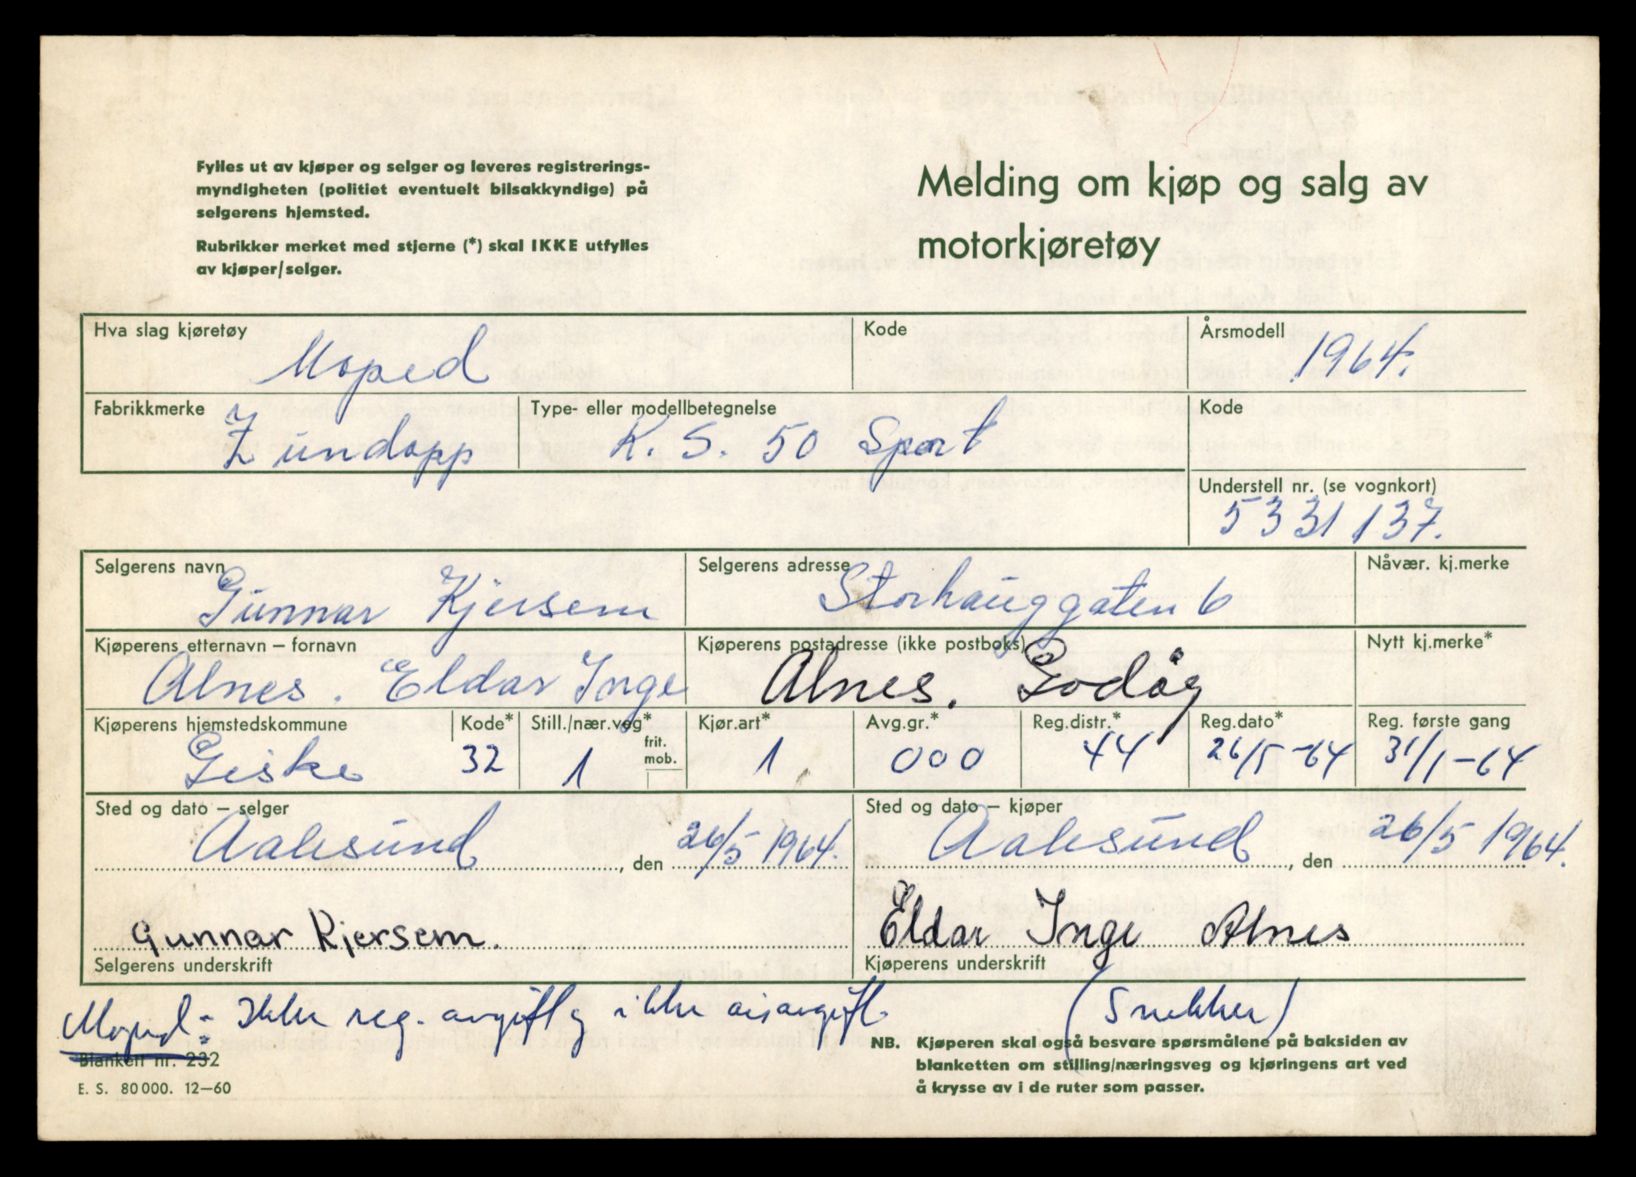 Fylles ut av kjøper og selger og leveres registrerings-
myndigheten (politiet eventuelt bilsakkyndige) på
selgerens hjemsted.
Rubrikker merket med stjerne (*) skal IKKE utfylles
av kjøper/selger.
Melding om kjøp og salg av
motorkjøretøy
Hva slag kjøretøy
Moped
Kode
Årsmodell
1964.
Fabrikkmerke
Zündapp
Type- eller modellbetegnelse
K. S. 50 Sport
Kode
Understell nr. (se vognkort)
5331137.
Selgerens navn
Gunnar Kjersem
Selgerens adresse
Storhauggaten 6
Nåvær. kj.merke
Kjøperens etternavn – fornavn
Alnes. Eldar Inge
Kjøperens postadresse (ikke postboks)
Alnes. Godøy
Nytt kj.merke*
Kjøperens hjemstedskommune
Giske
Kode*
32
Still./nær.veg*
1
frit.
mob.
Kjør.art*
1
Avg.gr.*
000
Reg.distr.*
44
Reg.dato*
26/5-64
Reg. første gang
31/1-64
Sted og dato – selger
Aalesund, den 26/5 1964.
Sted og dato – kjøper
Aalesund, den 26/5 1964.
Gunnar Kjersem.
Selgerens underskrift
Eldar Inge Alnes
Kjøperens underskrift
Moped: Ikke reg. avgift og ikke
(Snekker)
Blankett nr. 232
E. S. 80000. 12–60
NB. Kjøperen skal også besvare spørsmålene på baksiden av
blanketten om stilling/næringsveg og kjøringens art ved
å krysse av i de ruter som passer.